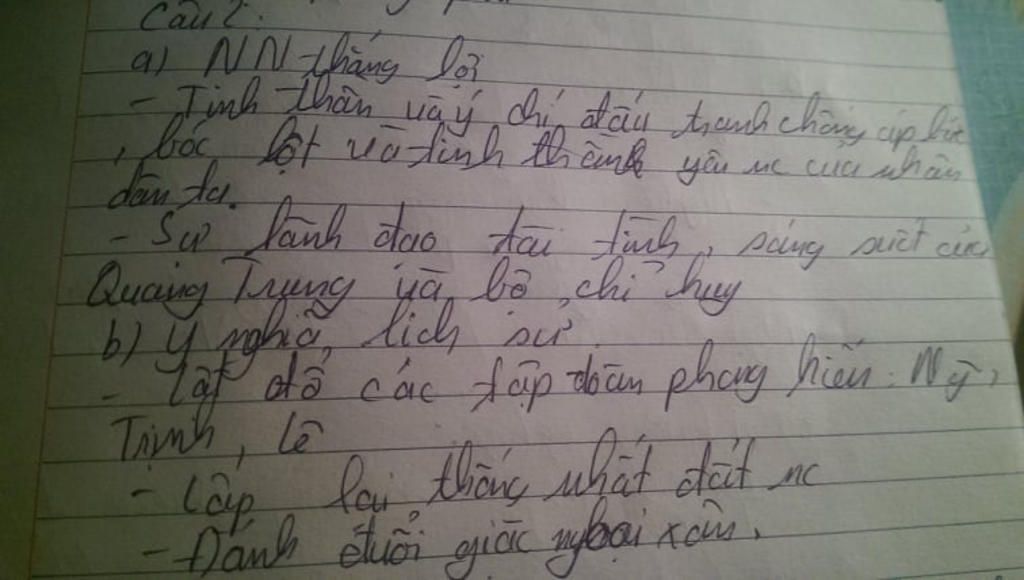 Câu 2.
a) NN thắng lợi
- Tinh thần và ý chí đấu tranh chống áp bức
, bóc lột và tinh thần yêu nc của nhân
dân ta.
- Sự lãnh đạo tài tình, sáng suốt của
Quang Trung và bộ chỉ huy
b) Ý nghĩa lịch sử
- Lật đổ các tập đoàn phong kiến: Ng~,
Trịnh, Lê
- Lập lại thống nhất đất nc
- Đánh đuổi giặc ngoại xâm.